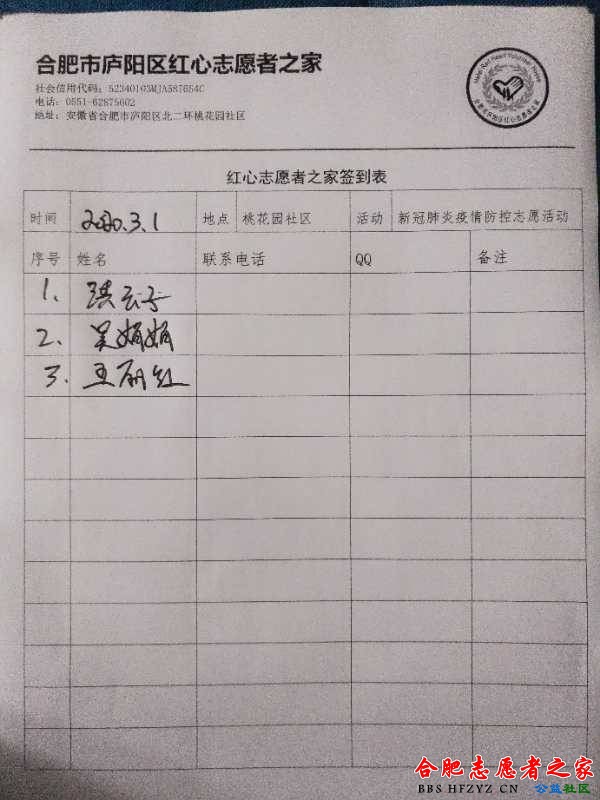 合肥市庐阳区红心志愿者之家
社会信用代码：52340103MJA587654C
电话：0551-62875602
地址：安徽省合肥市庐阳区北二环桃花园社区
Hefei Red Heart Volunteer Home
合肥市庐阳区红心志愿者之家
红心志愿者之家签到表
时间 2020.3.1 地点 桃花园社区 活动 新冠肺炎疫情防控志愿活动
序号 姓名 联系电话 QQ 备注
1.
2. 吴娟娟
3. 王丽红
合肥志愿者之家
BBS HFZYZ CN 公益社区